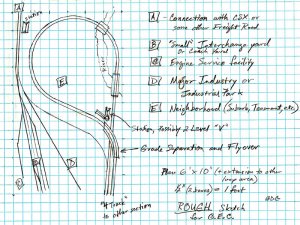 A
Station
A - Connection with CSX or
some other Freight Road.
B "Small" Interchange yard
Or Coach Yard
C Engine Service facility
D Major Industry or
Industrial Park
E Neighborhood (Suburb, Tenement, etc.)
E
Station, Possibly 2 Level "V"
Grade Separation and Flyover
B
D
D
"4 Track"
to other section
Plan 6' x 10' (+ extension to other
loop area)
(2 boxes) = 1 foot
ROUGH Sketch
for G.E.C.